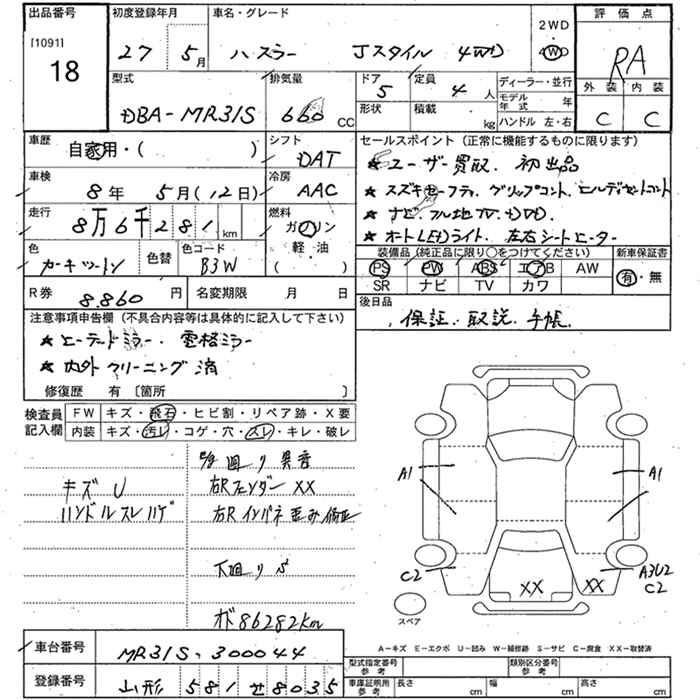 出品番号
[1091]
18
初度登録年月
27 5月
車名・グレード
ハスラー Jスタイル 4WD
2WD
4WD
評価点
RA
外装 内装
C C
型式
DBA-MR31S
排気量
660 CC
ドア
5
形状
定員
4 人
積載
kg
ディーラー・並行
モデル年式 年
ハンドル 左・右
車歴
自家用・( )
シフト
DAT
車検
8年 5月(12日)
冷房
AAC
走行
8万6千281km
燃料
ガソリン
軽・油
色
カーキツートン
色替
色コード
B3W
R券
8,860円
名変期限 月 日
セールスポイント(正常に機能するものに限ります)
★ユーザー買取、初出品
★スズキセーフティ、グリップコント、ヒルディセントコント
★ナビ、フル地TV、4WD、
★オートLEDライト、左右シートヒーター
装備品(純正品に限り○をつけてください)
PS PW ABS エアB AW
SR ナビ TV カワ
新車保証書
有・無
後日品
保証、取説、手帳、
注意事項申告欄(不具合内容等は具体的に記入して下さい)
★ヒーテードミラー、電格ミラー
★内外クリーニング済
修復歴 有 〔箇所 〕
検査員記入欄
FW キズ・飛石・ヒビ割・リペア跡・X要
内装 キズ・汚レ・コゲ・穴・スレ・キレ・破レ
廻り異音
キズU
右Rフェンダー XX
ハンドルスレハゲ
右Rインパネ歪み修正
下廻りS
メーター
86282km
A1
A1
C2
A3U2
C2
XX
XX
スペア
A-キズ E-エクボ U-凹み W-補修跡 S-サビ C-腐食 XX-取替済
車台番号
MR31S-300044
登録番号
山形 581 せ 8035
型式指定番号
参考
類別区分番号
参考
車庫証明用
参考
長さ cm
幅 cm
高さ cm